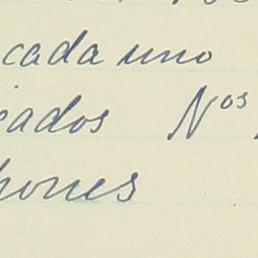 cada uno
cados Nos
hones